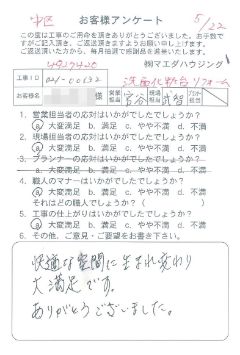 中区 お客様アンケート 5/22
この度は工事のご用命を頂きありがとうございました。お手数で
すがご記入頂き、ご返送頂きますようお願い申し上げます。
ご返送頂いた方には、毎月抽選で感謝品を進呈いたします。
㈱マエダハウジング
工事ID 021-00132 洗面化粧台リフォーム
様 営業担当 現場担当 プラン担当
1. 営業担当者の応対はいかがでしたでしょうか？
a 大変満足 b. 満足 c. やや不満 d. 不満
2. 現場担当者の応対はいかがでしたでしょうか？
a 大変満足 b. 満足 c. やや不満 d. 不満
3. プランナーの応対はいかがでしたでしょうか？
a. 大変満足 b. 満足 c. やや不満 d. 不満
4. 職人のマナーはいかがでしたでしょうか？
a 大変満足 b. 満足 c. やや不満 d. 不満
それはどの職人でしょうか？（ ）
5. 工事の仕上がりはいかがでしたでしょうか？
a 大変満足 b. 満足 c. やや不満 d. 不満
6. その他、ご意見・ご要望をお書き下さい。
快適な空間に生まれ変わり
大満足です。
ありがとうございました。